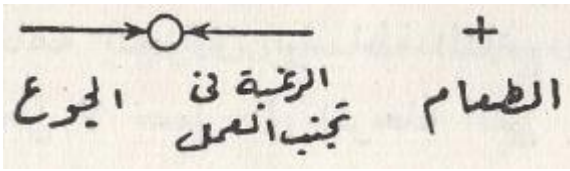 +
الطعام
الرغبة في
تجنب العمل
الجوع